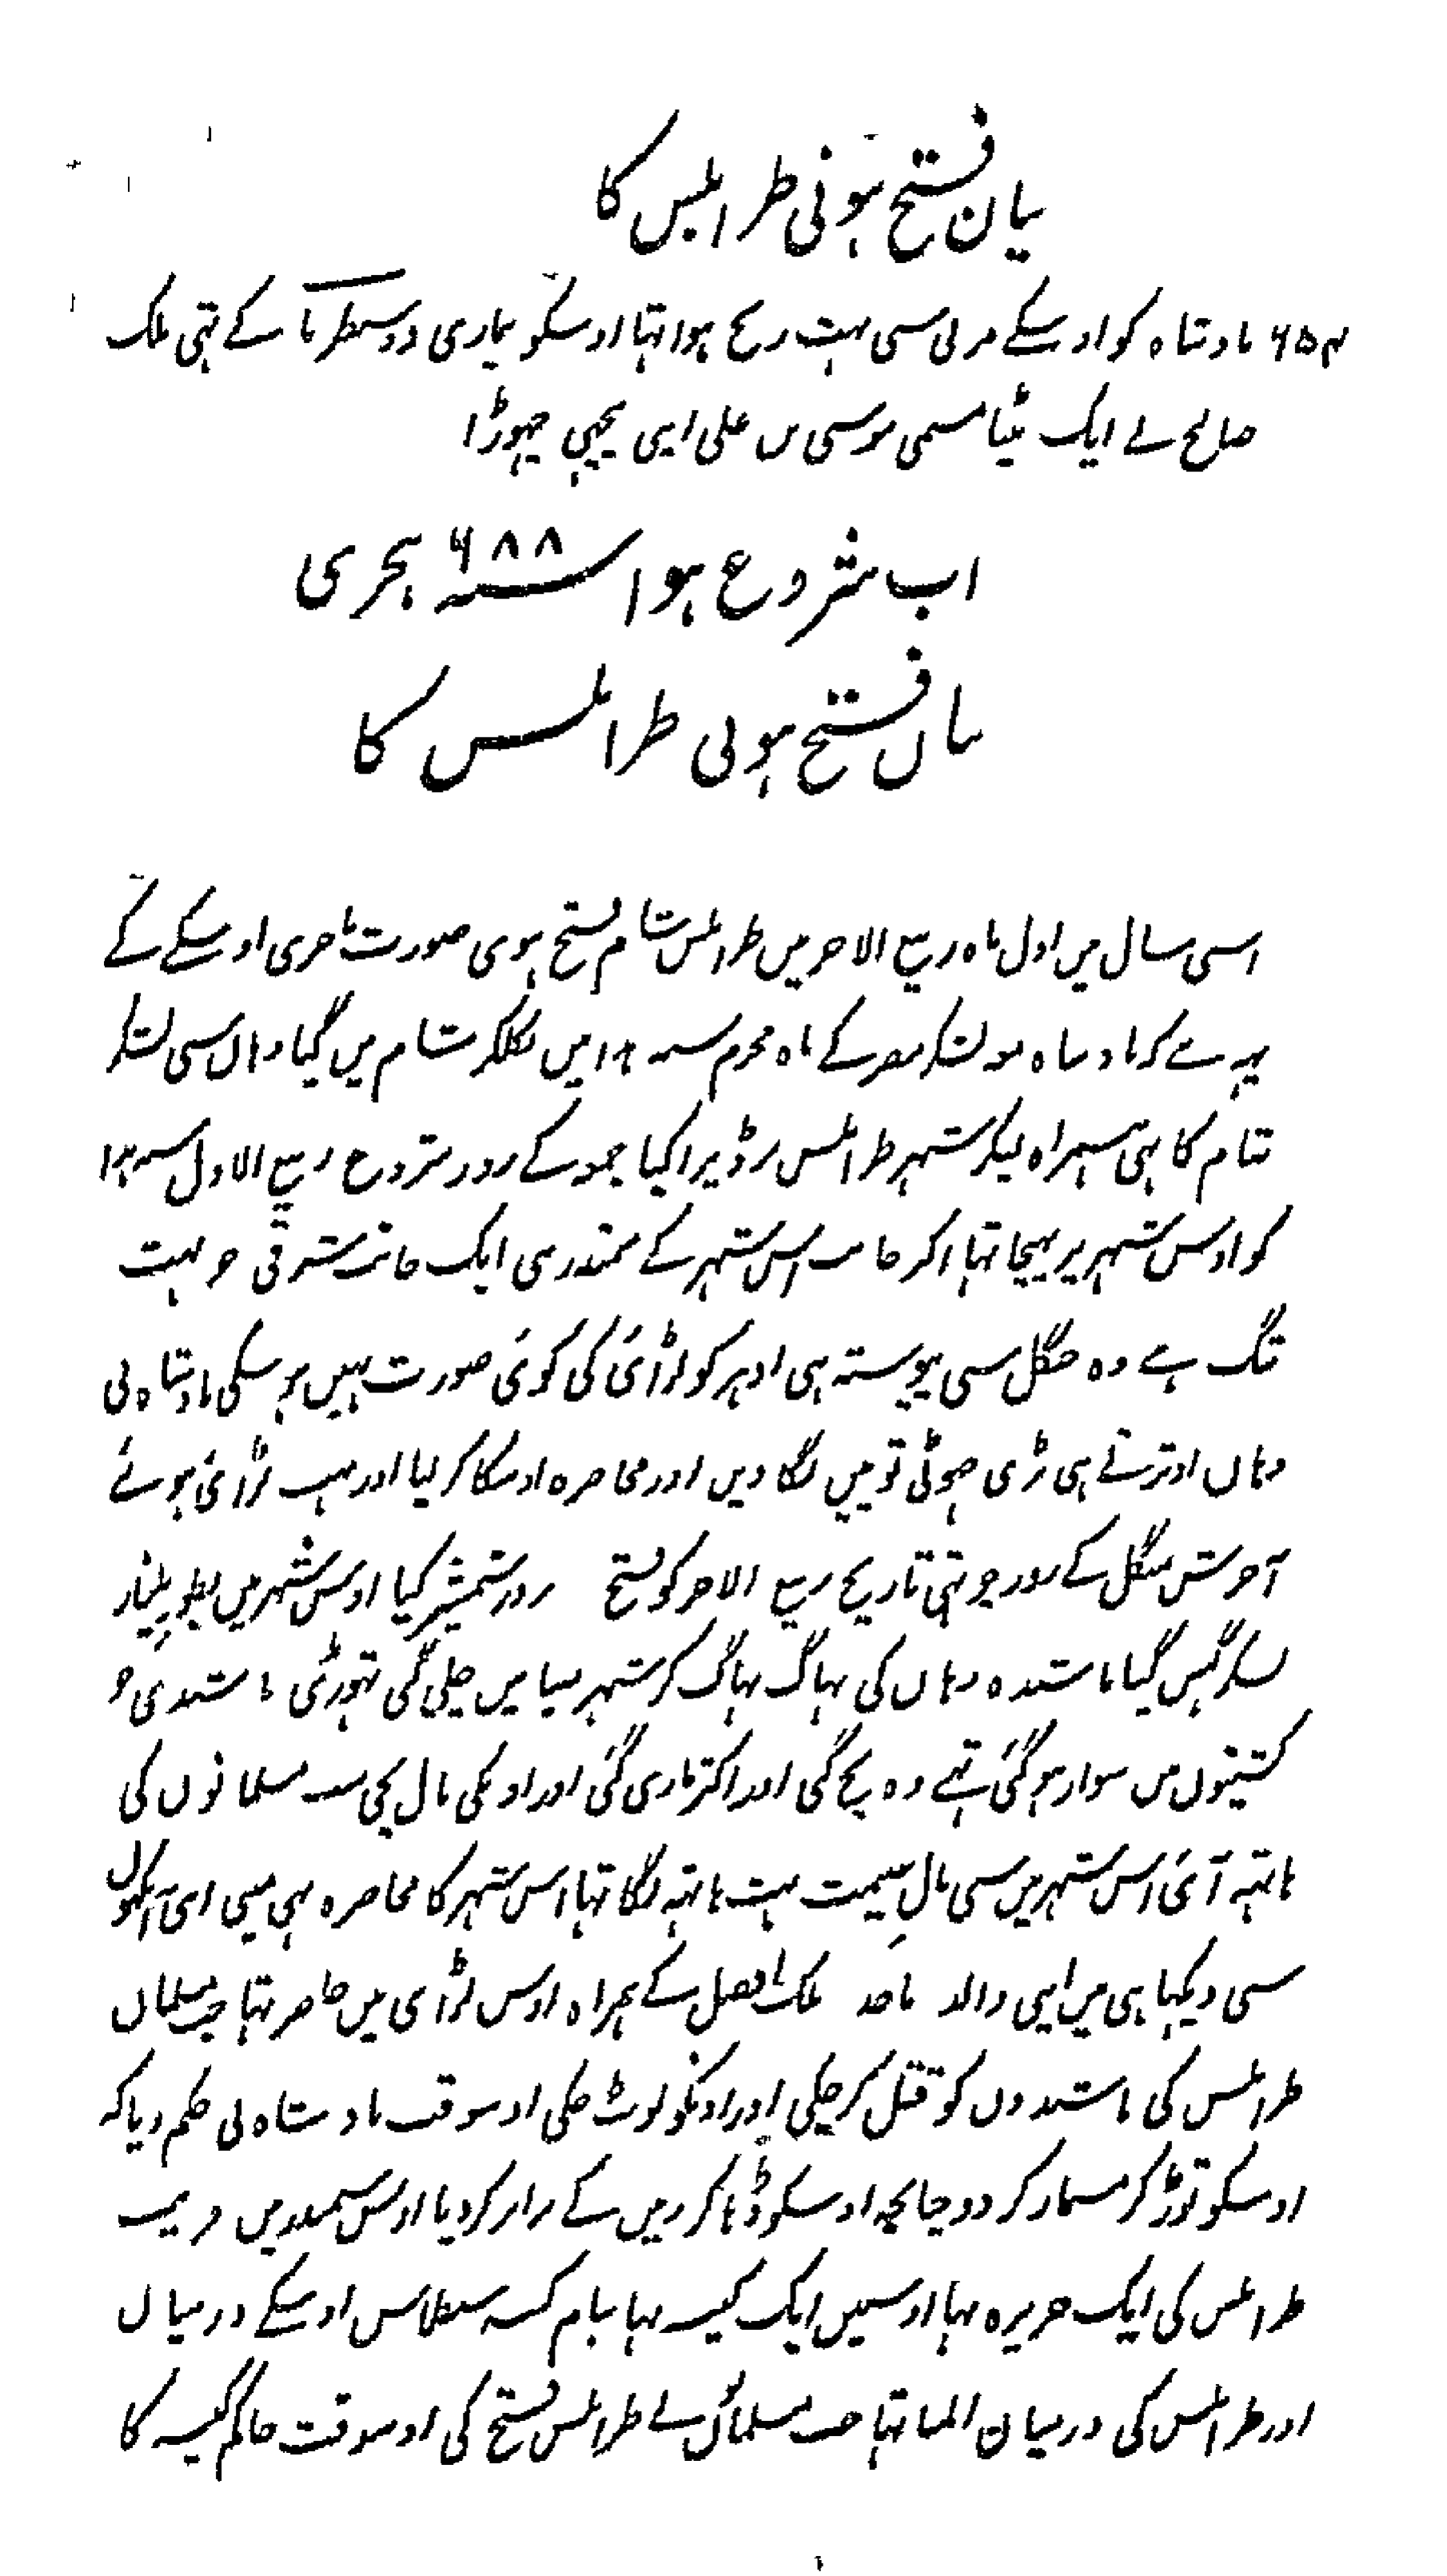 بیان فتح ہونی طرابلس کا
۶۵۴ بادشاہ کو اوسکے مرنی سی بہت رنج ہوا تہا اوسکو بیماری دوسنطریا کے تہی ملک
صالح نے ایک بیٹا مسمی موسی بن علی اپنی پیچہی چہوڑا
اب شروع ہوا سنہ ۶۸۸ ہجری
بیان فتح ہونی طرابلس کا
اسی سال میں اول ماہ ربیع الاخر میں طرابلس شام فتح ہوی صورت ماجری اوسکے کے
یہہ ہے کہ بادشاہ مع لشکر مصر کے ماہ محرم سنہ میں نکلکر شام میں گیا وہاں سی لشکر
شام کا بہی ہمراہ لیکر شہر طرابلس پر ڈیرا کیا جمعہ کے روز شروع ربیع الاول سنہ
کو اوس شہر پر پہنچا تہا اکثر جانب اس شہر کے سمندر ہی ایک جانب شرقی جو بہت
تنگ ہے وہ جنگل سی پیوستہ ہی ادہر کو لڑائی کی کوئی صورت نہیں ہو سکی بادشاہ نی
وہاں اوترتے ہی بڑی چہوٹی توپیں لگا دیں اور محاصرہ اوسکا کر لیا اور بہت لڑائی ہوئے
آخرش منگل کے روز چوتہی تاریخ ربیع الاخر کو فتح بزور شمشیر کیا اوس شہر میں بطور یلغار
لشکر گہس گیا باشندہ وہاں کی بہاگ بہاگ کر شہر مینا میں چلی گی تہوڑی باشندی جو
کشتیوں میں سوار ہو گئی تہے وہ بچ گی اور اکثر ماری گئی اور اونکی مال بچی سب مسلمانوں کی
ہاتہہ آئی اس شہر میں سی مال غنیمت بہت ہاتہہ لگا تہا اس شہر کا محاصرہ بہی مینی اپنی آنکہوں
سی دیکہا ہی میں اپنی والد ماجد ملک افضل کے ہمراہ اوس لڑائی میں حاضر تہا جب مسلمان
طرابلس کی باشندوں کو قتل کر چکی اور اونکو لوٹ چکی اوسوقت بادشاہ نی حکم دیا کہ
اوسکو توڑ کر مسمار کر دو چنانچہ اوسکو ڈہا کر زمیں کے برابر کر دیا اوس سمندر میں قریب
طرابلس کی ایک جزیرہ تہا اوسمیں ایک کنیسہ تہا بنام کنیسہ سنطماس اوسکے درمیان
اور طرابلس کی درمیان المینا تہا جب مسلمانوں نے طرابلس فتح کی اوسوقت حاکم کنیسہ کا